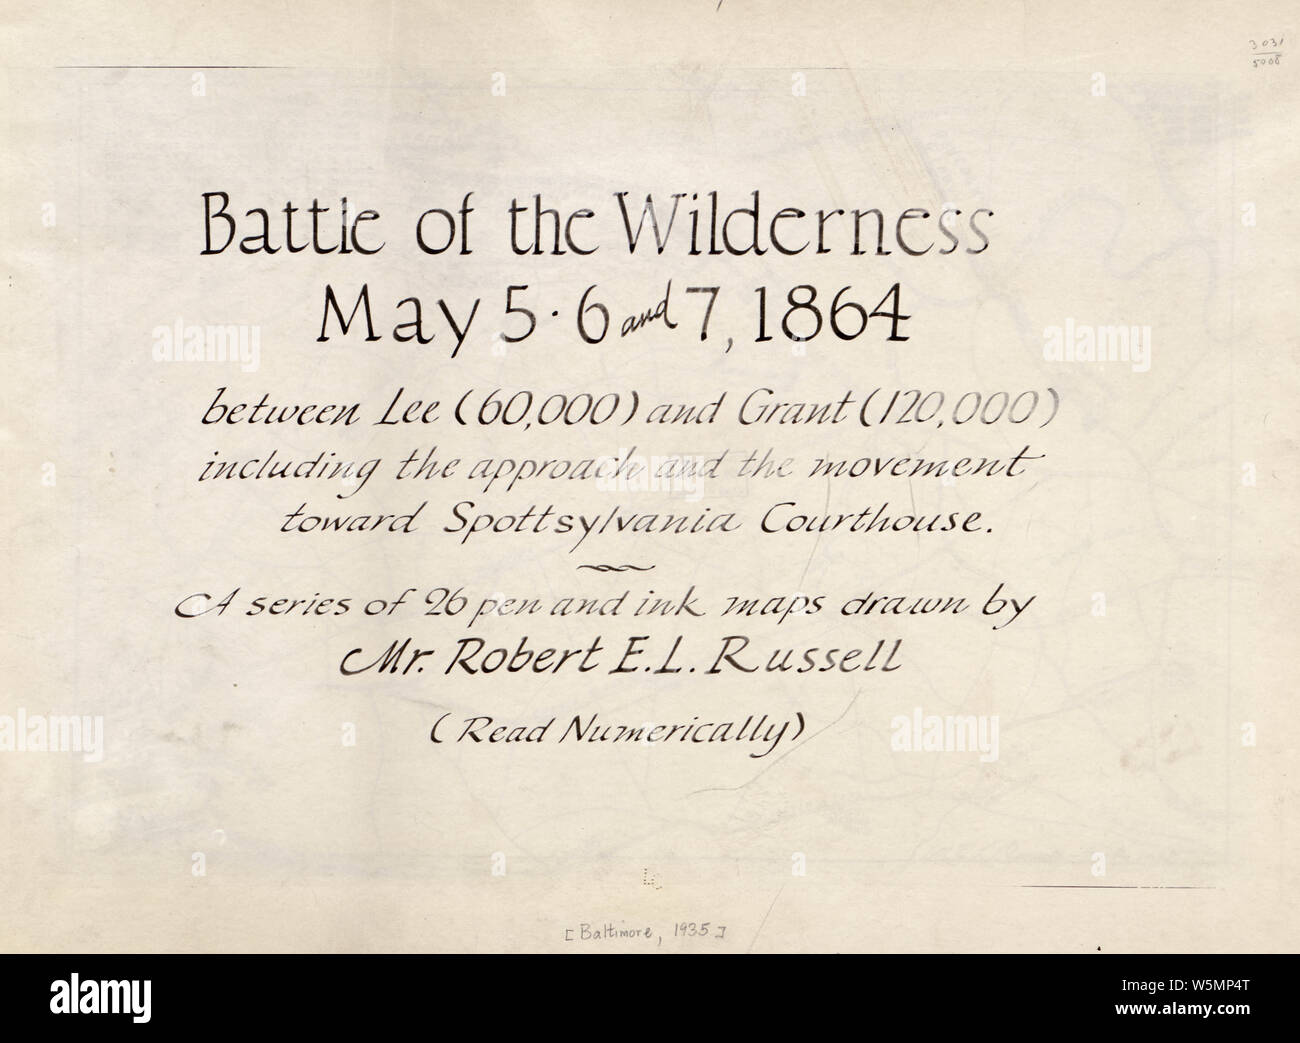 3031
5008
Battle of the Wilderness
May 5·6 and 7, 1864
between Lee (60,000) and Grant (120,000)
including the approach and the movement
toward Spottsylvania Courthouse.
A series of 26 pen and ink maps drawn by
Mr. Robert E.L. Russell
(Read Numerically)
LC
[Baltimore, 1935]
alamy
Image ID: W5MP4T
www.alamy.com